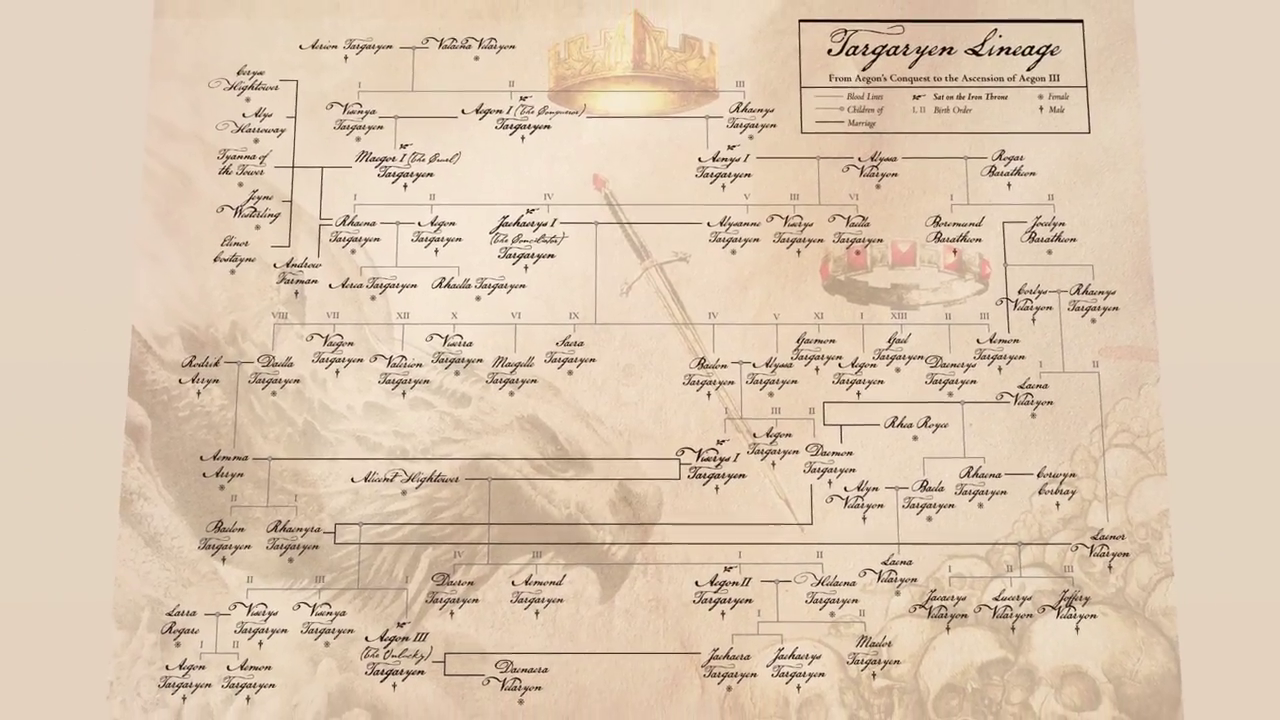 Targaryen Lineage
From Aegon's Conquest to the Ascension of Aegon III
Blood Lines
Sat on the Iron Throne
Female
Children of
I, II Birth Order
Male
Marriage
Aerion Targaryen
Valaena Velaryon
I
II
III
Ceryse
Hightower
Alys
Harroway
Tyanna of
the Tower
Jeyne
Westerling
Elinor
Costayne
Visenya
Targaryen
Aegon I (The Conqueror)
Targaryen
Rhaenys
Targaryen
Maegor I (The Cruel)
Targaryen
Aenys I
Targaryen
Alyssa
Velaryon
Rogar
Baratheon
I
II
IV
V
III
VI
I
II
Rhaena
Targaryen
Aegon
Targaryen
Jaehaerys I
(The Conciliator)
Targaryen
Alysanne
Targaryen
Viserys
Targaryen
Vaella
Targaryen
Boremund
Baratheon
Jocelyn
Baratheon
Andrew
Farman
Aerea Targaryen
Rhaella Targaryen
Corlys
Velaryon
Rhaenys
Targaryen
VIII
VII
XII
X
VI
IX
IV
V
XI
I
XIII
II
III
Rodrik
Arryn
Daella
Targaryen
Vaegon
Targaryen
Valerion
Targaryen
Viserra
Targaryen
Maegelle
Targaryen
Saera
Targaryen
Baelon
Targaryen
Alyssa
Targaryen
Gaemon
Targaryen
Aegon
Targaryen
Gael
Targaryen
Daenerys
Targaryen
Aemon
Targaryen
I
II
Laena
Velaryon
I
III
II
Rhea Royce
Aemma
Arryn
Alicent Hightower
Viserys I
Targaryen
Aegon
Targaryen
Daemon
Targaryen
Alyn
Velaryon
Baela
Targaryen
Rhaena
Targaryen
Corwyn
Corbray
II
I
Baelon
Targaryen
Rhaenyra
Targaryen
Laenor
Velaryon
IV
III
I
II
Daeron
Targaryen
Aemond
Targaryen
Aegon II
Targaryen
Helaena
Targaryen
Laena
Velaryon
I
II
III
Jacaerys
Velaryon
Lucerys
Velaryon
Joffery
Velaryon
II
III
I
Larra
Rogare
Viserys
Targaryen
Visenya
Targaryen
Aegon III
(The Unlucky)
Targaryen
I
II
Aegon
Targaryen
Aemon
Targaryen
Daenaera
Velaryon
I
II
Jaehaera
Targaryen
Jaehaerys
Targaryen
Maelor
Targaryen